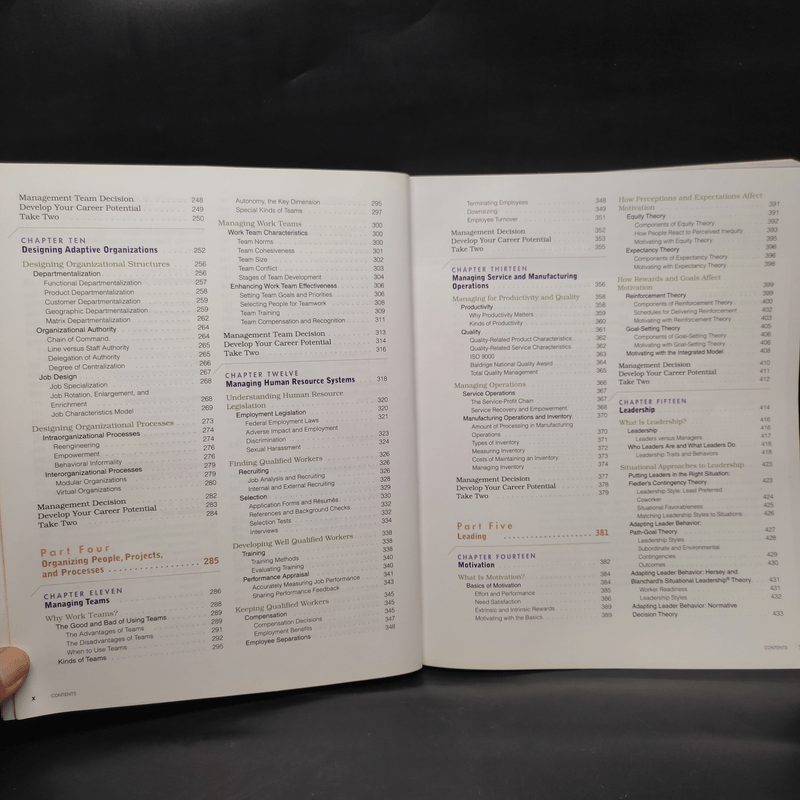 Management Team Decision 248
Develop Your Career Potential 249
Take Two 250
CHAPTER TEN
Designing Adaptive Organizations 252
Designing Organizational Structures 256
Departmentalization 256
Functional Departmentalization 257
Product Departmentalization 258
Customer Departmentalization 259
Geographic Departmentalization 259
Matrix Departmentalization 262
Organizational Authority 264
Chain of Command 264
Line versus Staff Authority 265
Delegation of Authority 265
Degree of Centralization 266
Job Design 267
Job Specialization 268
Job Rotation, Enlargement, and
Enrichment 268
Job Characteristics Model 269
Designing Organizational Processes 273
Intraorganizational Processes 274
Reengineering 274
Empowerment 276
Behavioral Informality 276
Interorganizational Processes 279
Modular Organizations 279
Virtual Organizations 280
Management Decision 282
Develop Your Career Potential 283
Take Two 284
Part Four
Organizing People, Projects,
and Processes 285
CHAPTER ELEVEN 286
Managing Teams
Why Work Teams? 288
The Good and Bad of Using Teams 289
The Advantages of Teams 289
The Disadvantages of Teams 291
When to Use Teams 292
Kinds of Teams 295
x CONTENTS
Autonomy, the Key Dimension 295
Special Kinds of Teams 297
Managing Work Teams 300
Work Team Characteristics 300
Team Norms 300
Team Cohesiveness 301
Team Size 302
Team Conflict 303
Stages of Team Development 304
Enhancing Work Team Effectiveness 306
Setting Team Goals and Priorities 306
Selecting People for Teamwork 308
Team Training 309
Team Compensation and Recognition 311
Management Team Decision 313
Develop Your Career Potential 314
Take Two 316
CHAPTER TWELVE
Managing Human Resource Systems 318
Understanding Human Resource
Legislation 320
Employment Legislation 320
Federal Employment Laws 321
Adverse Impact and Employment
Discrimination 323
Sexual Harassment 324
Finding Qualified Workers 326
Recruiting 326
Job Analysis and Recruiting 326
Internal and External Recruiting 328
Selection 329
Application Forms and Résumés 330
References and Background Checks 332
Selection Tests 332
Interviews 334
Developing Well Qualified Workers 338
Training 338
Training Methods 338
Evaluating Training 340
Performance Appraisal 340
Accurately Measuring Job Performance 341
Sharing Performance Feedback 343
Keeping Qualified Workers 345
Compensation 345
Compensation Decisions 345
Employment Benefits 347
Employee Separations 348
Terminating Employees 348
Downsizing 349
Employee Turnover 351
Management Decision 352
Develop Your Career Potential 353
Take Two 355
CHAPTER THIRTEEN
Managing Service and Manufacturing
Operations 356
Managing for Productivity and Quality 358
Productivity 358
Why Productivity Matters 359
Kinds of Productivity 360
Quality 361
Quality-Related Product Characteristics 362
Quality-Related Service Characteristics 362
ISO 9000 363
Baldrige National Quality Award 364
Total Quality Management 365
Managing Operations 366
Service Operations 367
The Service-Profit Chain 367
Service Recovery and Empowerment 368
Manufacturing Operations and Inventory 370
Amount of Processing in Manufacturing
Operations 370
Types of Inventory 371
Measuring Inventory 372
Costs of Maintaining an Inventory 373
Managing Inventory 374
Management Decision 377
Develop Your Career Potential 378
Take Two 379
Part Five
Leading 381
CHAPTER FOURTEEN
Motivation 382
What Is Motivation? 384
Basics of Motivation 384
Effort and Performance 385
Need Satisfaction 386
Extrinsic and Intrinsic Rewards 389
Motivating with the Basics 389
How Perceptions and Expectations Affect
Motivation 391
Equity Theory 391
Components of Equity Theory 392
How People React to Perceived Inequity 393
Motivating with Equity Theory 395
Expectancy Theory 396
Components of Expectancy Theory 396
Motivating with Expectancy Theory 398
How Rewards and Goals Affect
Motivation 399
Reinforcement Theory 399
Components of Reinforcement Theory 400
Schedules for Delivering Reinforcement 402
Motivating with Reinforcement Theory 402
Goal-Setting Theory 405
Components of Goal-Setting Theory 406
Motivating with Goal-Setting Theory 406
Motivating with the Integrated Model 408
Management Decision 410
Develop Your Career Potential 411
Take Two 412
CHAPTER FIFTEEN
Leadership 414
What Is Leadership? 416
Leadership 416
Leaders versus Managers 417
Who Leaders Are and What Leaders Do 418
Leadership Traits and Behaviors 418
Situational Approaches to Leadership 423
Putting Leaders in the Right Situation:
Fiedler's Contingency Theory 423
Leadership Style: Least Preferred
Coworker 424
Situational Favorableness 425
Matching Leadership Styles to Situations 426
Adapting Leader Behavior:
Path-Goal Theory 427
Leadership Styles 428
Subordinate and Environmental
Contingencies 429
Outcomes 430
Adapting Leader Behavior: Hersey and
Blanchard's Situational Leadership® Theory 431
Worker Readiness 431
Leadership Styles 432
Adapting Leader Behavior: Normative
Decision Theory 433
CONTENTS